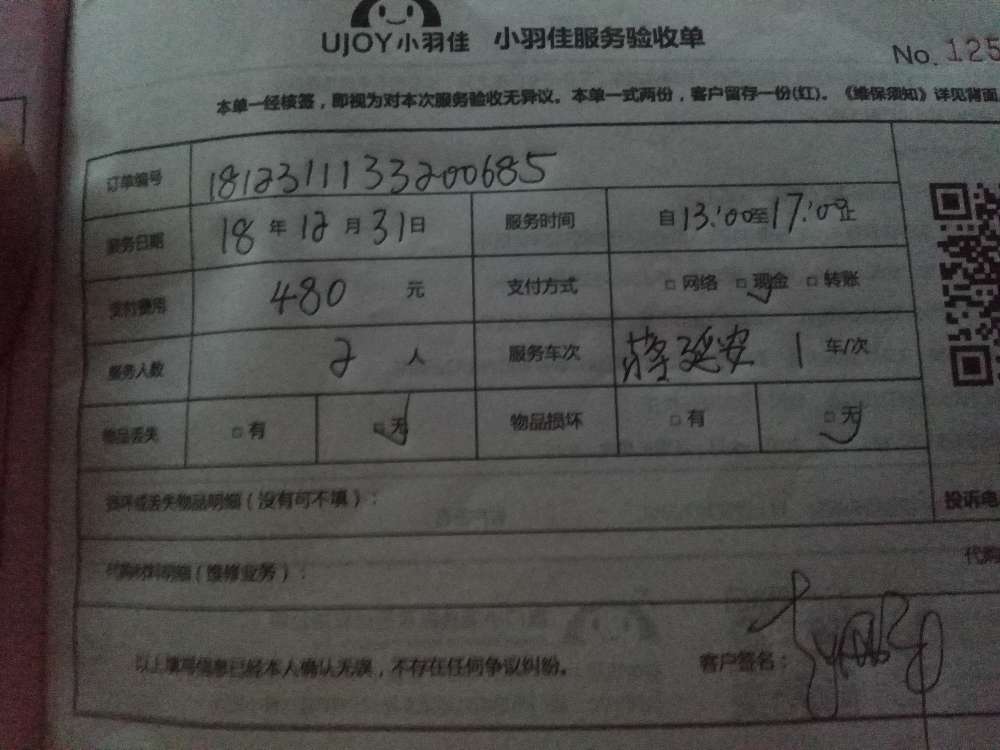 UJOY小羽佳 小羽佳服务验收单
No. 125
本单一经核签，即视为对本次服务验收无异议。本单一式两份，客户留存一份(红)。《维保须知》详见背面
订单编号 1812311133200685
服务日期 18 年 12 月 31 日 服务时间 自 13:00 至 17:00 止
支付费用 480 元 支付方式 □ 网络 □ 现金 □ 转账
服务人数 2 人 服务车次 蒋延安 1 车/次
物品丢失 □ 有 □ 无 物品损坏 □ 有 □ 无
损坏或丢失物品明细（没有可不填）： 投诉电
代购材料明细（维修业务）： 代购
以上填写信息已经本人确认无误，不存在任何争议纠纷。 客户签名：